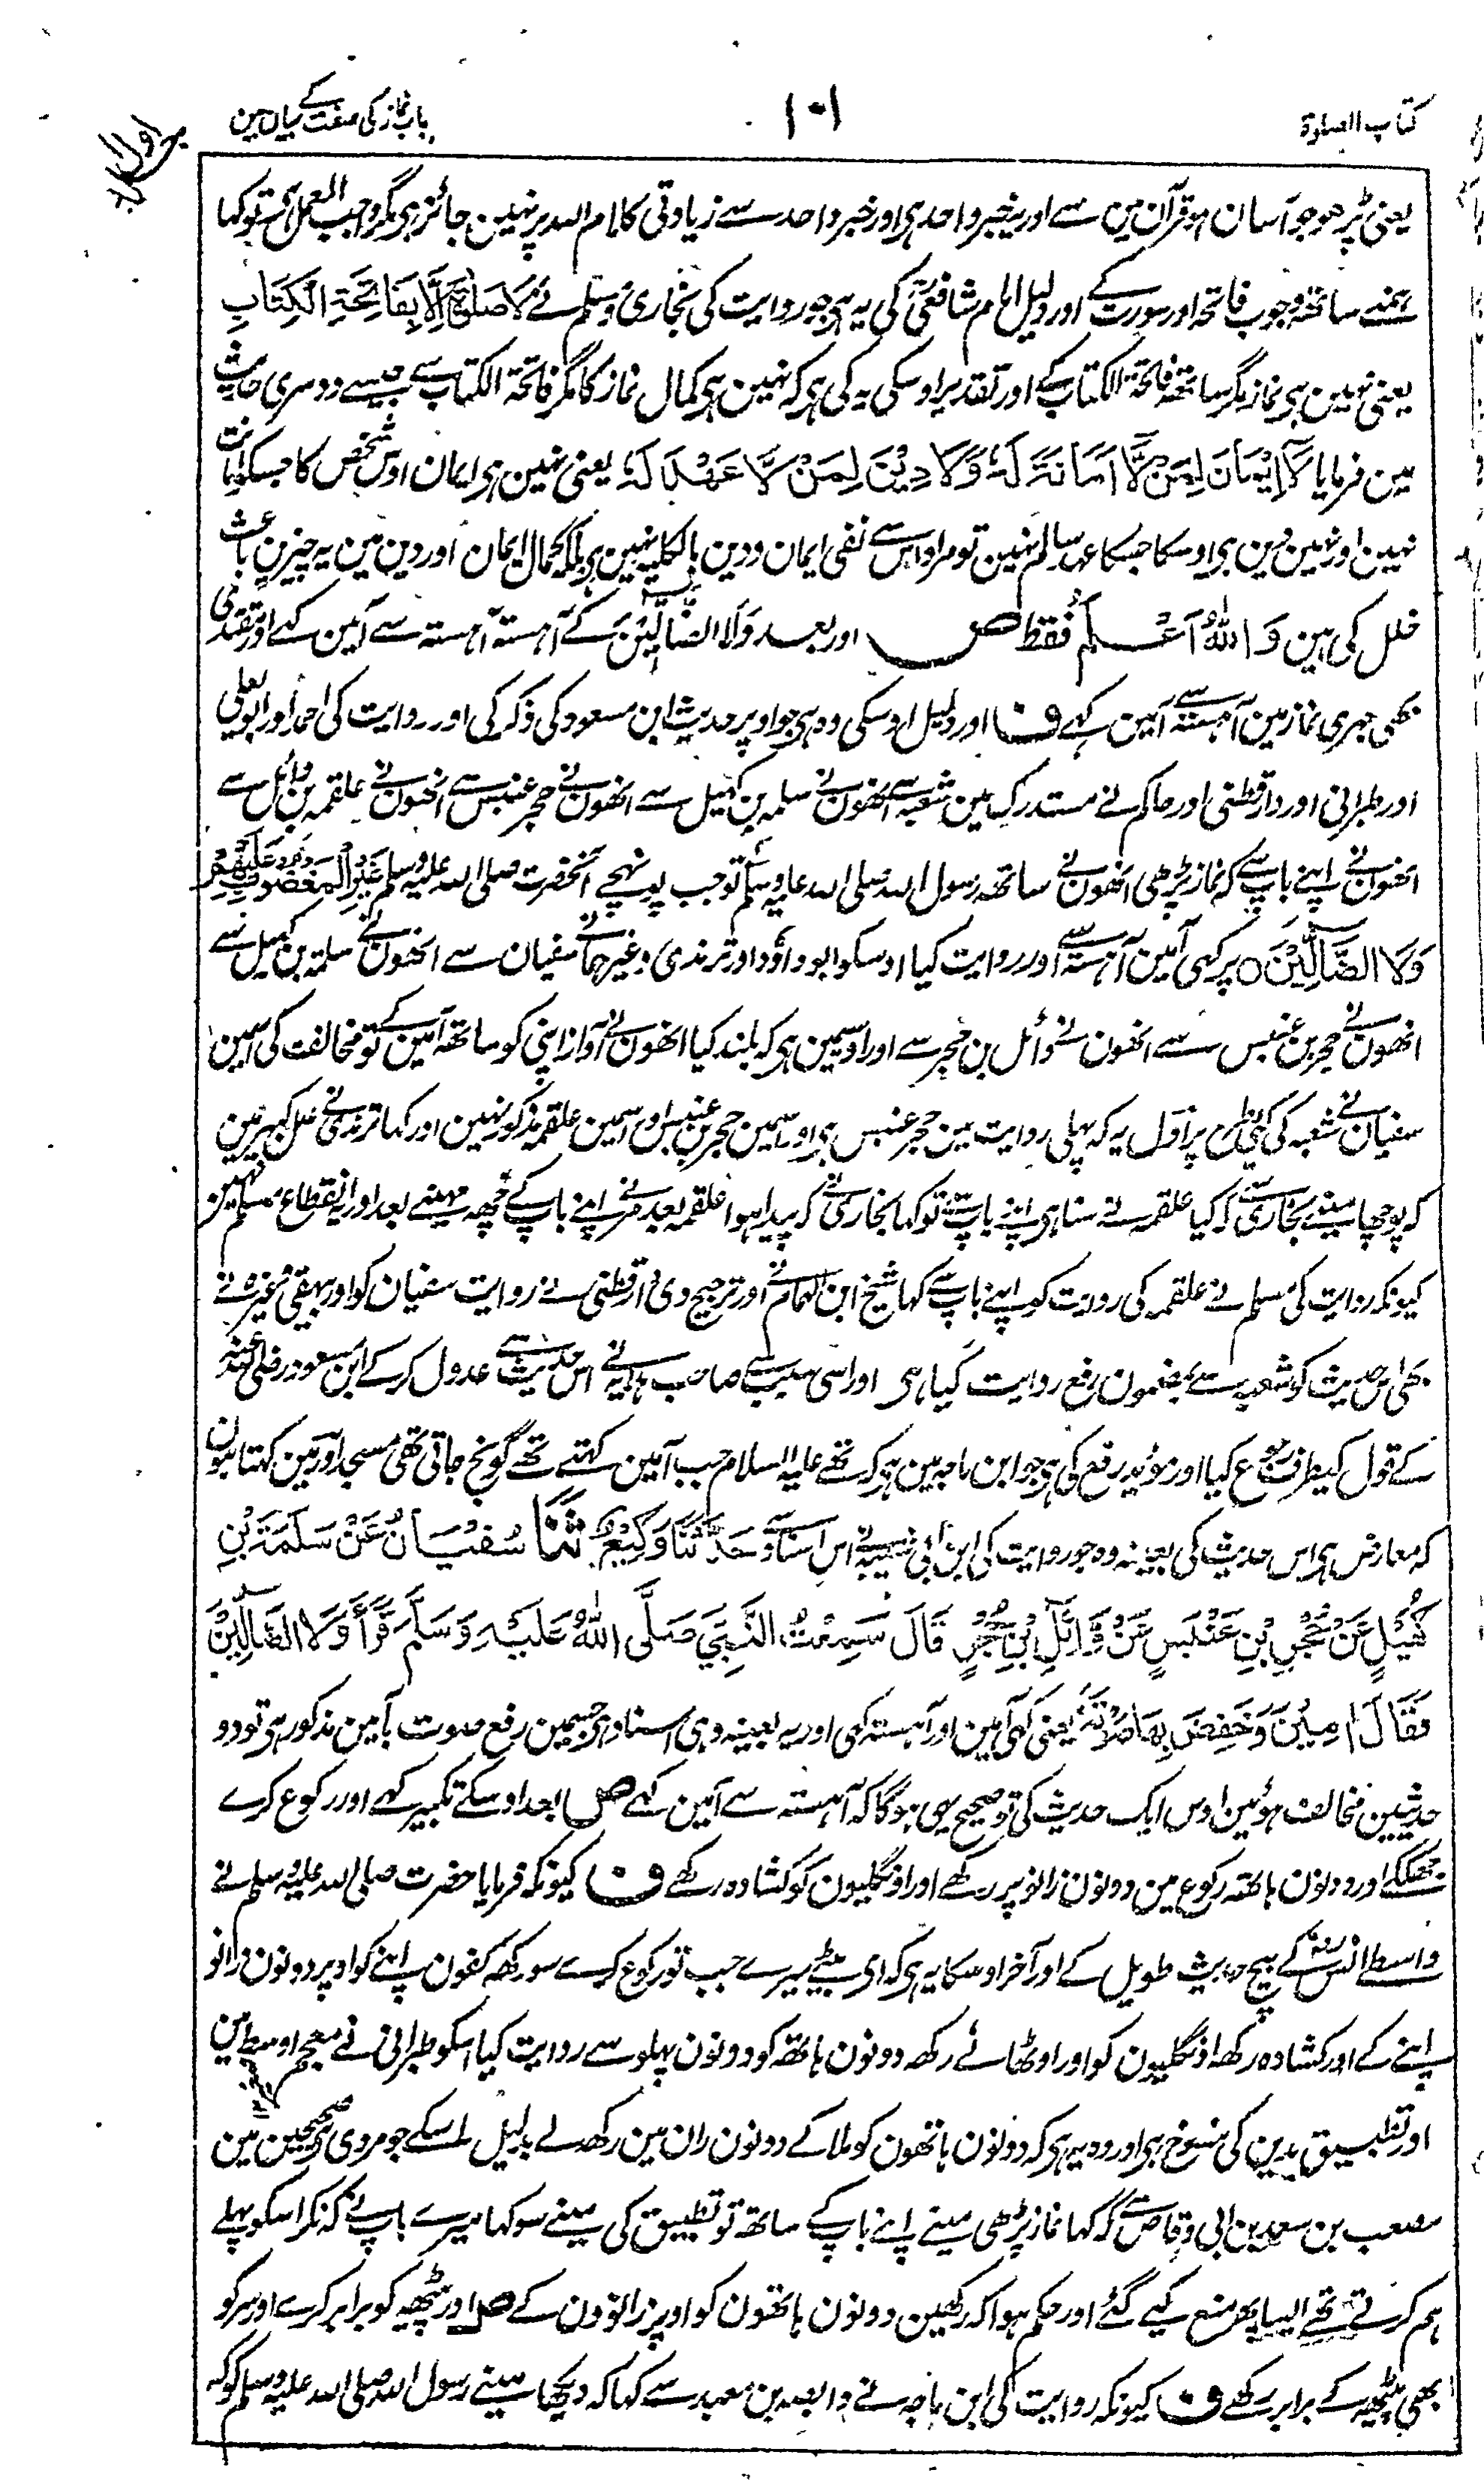 کتاب الصلوة
۱۰۱
باب نماز کی صفت کے بیان مین
جلد اول
یعنی پڑھو جو آسان ہو قرآن مین سے اور یہ خبر واحد ہی اور خبر واحد سے زیادتی کلام اللہ پر نہین جائز ہی مگر واجب العمل ہی تو کہا
ہمنے ساتھ وجوب فاتحہ اور سورت کے اور دلیل امام شافعیؒ کی یہ ہی جو روایت کی بخاری و مسلم نے لَا صَلٰوةَ اِلَّا بِفَاتِحَةِ الْکِتَابِ
یعنی نہین ہی نماز مگر ساتھ فاتحة الکتاب کے اور تقدیر اوسکی یہ کی ہی کہ نہین ہی کمال نماز کا مگر فاتحة الکتاب سے جیسے دوسری حدیث
مین فرمایا لَا اِیْمَانَ لِمَنْ لَّا اَمَانَةَ لَهٗ وَلَا دِیْنَ لِمَنْ لَّا عَهْدَ لَهٗ یعنی نہین ہی ایمان اوس شخص کا جسکو امانت
نہین اور نہین دین ہی اوسکا جسکا عہد سالم نہین تو مراد اس سے نفی ایمان و دین بالکلیہ نہین ہی بلکہ کمال ایمان اور دین مین یہ چیزین باعث
خلل کی ہین وَاللّٰهُ اَعْلَمُ فقط ص اور بعد وَلَا الضَّآلِّیْنَ کے آہستہ آہستہ سے آمین کہے اور مقتدی
بھی جہری نماز مین آہستہ سے آمین کہے ف اور دلیل اوسکی وہ ہی جو اوپر حدیث ابن مسعود کی ذکر کی اور روایت کی احمد اور ابو یعلی
اور طبرانی اور دارقطنی اور حاکم نے مستدرک مین شعبہ سے انھون نے سلمہ بن کہیل سے انھون نے حجر عنبس سے انھون نے علقمہ بن وائل سے
انھون نے اپنے باپ سے کہ نماز پڑھی انھون نے ساتھ رسول اللہ صلی اللہ علیہ وسلم تو جب پہونچے آنحضرت صلی اللہ علیہ وسلم غَیْرِ الْمَغْضُوْبِ عَلَیْهِمْ
وَلَا الضَّآلِّیْنَ ○ پر کہی آمین آہستہ سے اور روایت کیا اوسکو ابو داؤد اور ترمذی وغیرہما نے سفیان سے انھون نے سلمة بن کہیل سے
انھون نے حجر بن عنبس سے انھون نے وائل بن حجر سے اور اوسمین ہی کہ بلند کیا انھون نے آواز اپنی کو ساتھ آمین کے تو مخالفت کی اسمین
سفیان نے شعبہ کی کئی طرح پر اول یہ کہ پہلی روایت مین حجر عنبس ہی اور اسمین حجر بن عنبس اور اسمین علقمہ مذکور نہین اور کہا ترمذی نے علل کبیر مین
کہ پوچھا مینے بخاری سے کہ کیا علقمہ نے سنا ہی اپنے باپ سے تو کہا بخاری نے کہ پیدا ہوا علقمہ بعد مرنے اپنے باپ کے چھہ مہینے بعد اور یہ انقطاع مسلم نہین
کیونکہ روایت کی مسلم نے علقمہ کی روایت کو اپنے باپ سے کہا شیخ ابن الہمام نے اور ترجیح دی دارقطنی نے روایت سفیان کو اور بیہقی وغیرہ نے
بھی اس حدیث کو شعبہ سے بمضمون رفع روایت کیا ہی اور اسی سبب سے صاحب ہدایہ نے اس حدیث سے عدول کر کے ابن مسعود رضی اللہ عنہ
کے قول کیطرف رجوع کیا اور مؤید رفع کی ہی جو ابن ماجہ مین ہی کہ تھے علیہ السلام جب آمین کہتے تھے گونج جاتی تھی مسجد اور مین کہتا ہون
کہ معارض ہی اس حدیث کی بعینہ وہ جو روایت کی ابن ابی شیبہ نے اس اسناد سے حَدَّثَنَا وَکِیْعٌ ثَنَا سُفْیَانُ عَنْ سَلَمَةَ بْنِ
کُهَیْلٍ عَنْ حُجْرِ بْنِ عَنْبَسٍ عَنْ وَّائِلِ بْنِ حُجْرٍ قَالَ سَمِعْتُ النَّبِیَّ صَلَّی اللّٰهُ عَلَیْهِ وَسَلَّمَ قَرَأَ وَلَا الضَّآلِّیْنَ
فَقَالَ اٰمِیْنَ وَخَفِضَ بِهَا صَوْتَهٗ یعنی کہی آمین اور آہستہ کہی اور یہ بعینہ وہی اسناد ہی جسمین رفع صوت بآمین مذکور ہی تو دو
حدیثین مخالف ہوئین اوس ایک حدیث کی تو صحیح یہی ہوگا کہ آہستہ سے آمین کہے ص بعد اوسکے تکبیر کہے اور رکوع کرے
جھککے اور دونون ہاتھ رکوع مین دونون زانو پر رکھے اور اونگلیون کو کشادہ رکھے ف کیونکہ فرمایا حضرت صلی اللہ علیہ وسلم نے
واسطے انس رضہ کے بیچ حدیث طویل کے اور آخر اوسکا یہ ہی کہ ای بیٹے میرے جب تو رکوع کرے سو رکھ کفون اپنے کو اوپر دونون زانو
اپنے کے اور کشادہ رکھ اونگلیون کو اور اوٹھائے رکھ دونون ہاتھ کو دونون پہلو سے روایت کیا اسکو طبرانی نے معجم اوسط مین
اور تطبیق یدین کی منسوخ ہی اور وہ یہ ہی کہ دونون ہاتھون کو ملا کے دونون ران مین رکھ لے بدلیل اسکے جو مروی ہی صحیحین مین
مصعب بن سعد بن ابی وقاص سے کہ کہا نماز پڑھی مینے اپنے باپ کے ساتھ تو تطبیق کی مینے سو کہا میرے باپ نے کہ نکر اسکو پہلے
ہم کرتے تھے ایسا پھر منع کیے گئے اور حکم ہوا کہ رکھین دونون ہاتھون کو اوپر زانوون کے ص اور پیٹھ کو برابر کرے اور سر کو
بھی پیٹھ کے برابر رکھے ف کیونکہ روایت کی ابن ماجہ نے وابصہ بن معبد سے کہا کہ دیکھا مینے رسول اللہ صلی اللہ علیہ وسلم کو کہ